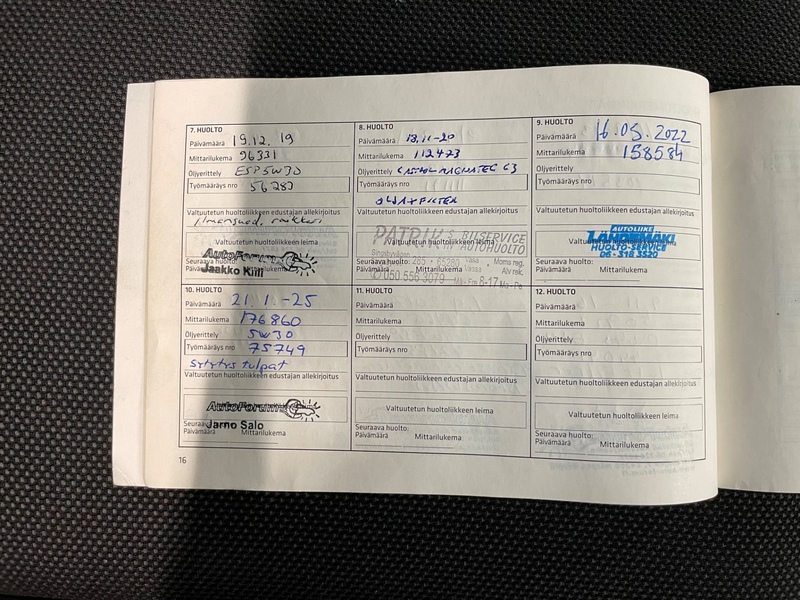 7. HUOLTO
Päivämäärä 19.12. 19
Mittarilukema 96331
Öljyerittely ESP 5W30
Työmääräys nro 56282
Valtuutetun huoltoliikkeen edustajan allekirjoitus
Ilmansuod.
Valtuutetun huoltoliikkeen leima
AutoForum
Jaakko Kiili
Seuraava huolto:
Päivämäärä Mittarilukema
8. HUOLTO
Päivämäärä 18.11-20
Mittarilukema 112473
Öljyerittely CASTROL MAGNATEC C3
Työmääräys nro
OLJA+FILTER
Valtuutetun huoltoliikkeen edustajan allekirjoitus
Valtuutetun huoltoliikkeen leima
PATRIK'S BILSERVICE
AUTOHUOLTO
265 • 65280 Vasa Moms reg.
Vaasa Alv rek.
050 556 3079 Må-Fre 8-17 Ma-Pe
Seuraava huolto:
Päivämäärä Mittarilukema
9. HUOLTO
Päivämäärä 16.05.2022
Mittarilukema 158584
Öljyerittely
Työmääräys nro
Valtuutetun huoltoliikkeen edustajan allekirjoitus
AUTOLIIKE
LÄNDENMÄKI
HUOLTO-SERVICE
06-318 3520
Seuraava huolto:
Päivämäärä Mittarilukema
10. HUOLTO
Päivämäärä 21.1.-25
Mittarilukema 176860
Öljyerittely 5W30
Työmääräys nro 75749
Sytytys tulpat
Valtuutetun huoltoliikkeen edustajan allekirjoitus
AutoForum
Jarno Salo
Seuraava huolto:
Päivämäärä Mittarilukema
11. HUOLTO
Päivämäärä
Mittarilukema
Öljyerittely
Työmääräys nro
Valtuutetun huoltoliikkeen edustajan allekirjoitus
Valtuutetun huoltoliikkeen leima
Seuraava huolto:
Päivämäärä Mittarilukema
12. HUOLTO
Päivämäärä
Mittarilukema
Öljyerittely
Työmääräys nro
Valtuutetun huoltoliikkeen edustajan allekirjoitus
Valtuutetun huoltoliikkeen leima
Seuraava huolto:
Päivämäärä Mittarilukema
16